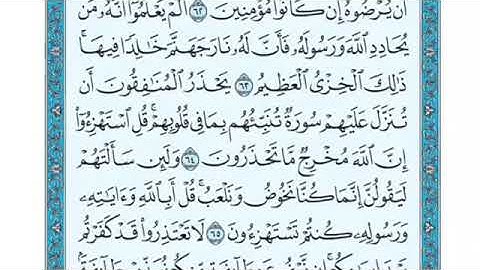 أَن يُرْضُوهُ إِن كَانُوا۟ مُؤْمِنِينَ ٦٢ أَلَمْ يَعْلَمُوٓا۟ أَنَّهُۥ مَن
يُحَادِدِ ٱللَّهَ وَرَسُولَهُۥ فَأَنَّ لَهُۥ نَارَ جَهَنَّمَ خَٰلِدًا فِيهَا ۚ
ذَٰلِكَ ٱلْخِزْىُ ٱلْعَظِيمُ ٦٣ يَحْذَرُ ٱلْمُنَٰفِقُونَ أَن
تُنَزَّلَ عَلَيْهِمْ سُورَةٌ تُنَبِّئُهُم بِمَا فِى قُلُوبِهِمْ ۚ قُلِ ٱسْتَهْزِءُوٓا۟
إِنَّ ٱللَّهَ مُخْرِجٌ مَّا تَحْذَرُونَ ٦٤ وَلَئِن سَأَلْتَهُمْ
لَيَقُولُنَّ إِنَّمَا كُنَّا نَخُوضُ وَنَلْعَبُ ۚ قُلْ أَبِٱللَّهِ وَءَايَٰتِهِۦ
وَرَسُولِهِۦ كُنتُمْ تَسْتَهْزِءُونَ ٦٥ لَا تَعْتَذِرُوا۟ قَدْ كَفَرْتُم